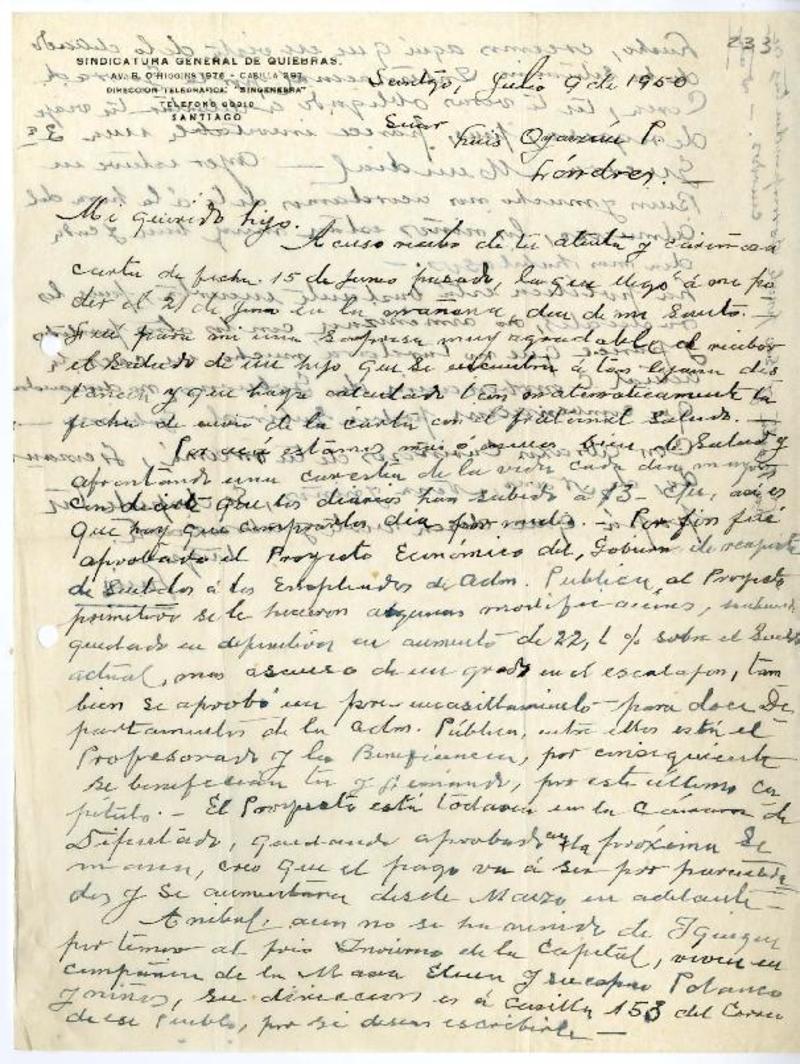 233
SINDICATURA GENERAL DE QUIEBRAS.
AV. B. O'HIGGINS 1976 - CASILLA 297
DIRECCION TELEGRAFICA: "SINGENEBRA"
TELEFONO
SANTIAGO
Santgo, Julio 9 de 1950
Señor
Luis Oyarzún P.
Lóndres. —
Mi querido hijo.
Acuso recibo de tu atenta y cariñosa
carta de fecha 15 de Junio pasado, la que llegó á mi po
der el 21 de Junio en la mañana, dia de mi Santo. —
Fué para mi una sorpresa muy agradable el recibir
el saludo de un hijo que se encuentra á tan lejana dis
tancia y que haya calculado tan matematicamente la
fecha de envio de la carta con el fraternal saludo. —
Por acá estamos mas ó menos bien de Salud y
afrontando una carestia de la vida cada dia mayor,
con decirte que los diarios han subido á $3- c/u, asi es
que hay que comprarlos dia por medio. — Por fin fué
aprobado el Proyecto Económico del Gobierno de reajuste
de Sueldos á los Empleados de Adm. Publica, al Proyecto
primitivo se le hicieron algunas modificaciones, habiendo
quedado en definitiva en aumento de 22,1 % sobre el Sueldo
actual, mas ascenso de un grado en el escalafon, tam
bien se aprobó un pre-encasillamiento para doce De
partamentos de la Adm. Pública, entre ellos está el
Profesorado y la Beneficencia, por consiguiente
se benefician tu y Fernando, por este último ca
pítulo. — El Proyecto está todavia en la Cámara de
Diputado, quedando aprobado en la próxima Se
mana, creo que el pago va á ser por parcialida
des y se aumentara desde Marzo en adelante —
Anibal, aun no se ha venido de Iquique
por temor al frio Invierno de la Capital, viven en
compañia de la Mara Elena y su esposo Polanco
y niños, su direccion es á casilla 153 del Correo
de ese Pueblo, por si deseas escribirle —